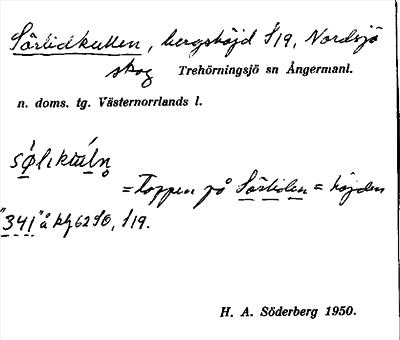 Sörlidkullen, bergshöjd S19, Nordsjö
skog Trehörningsjö sn Ångermanl.
n. doms. tg. Västernorrlands l.
= Toppen på Sörliden = höjden
"341" å kbl 62 SO, S19.
H. A. Söderberg 1950.